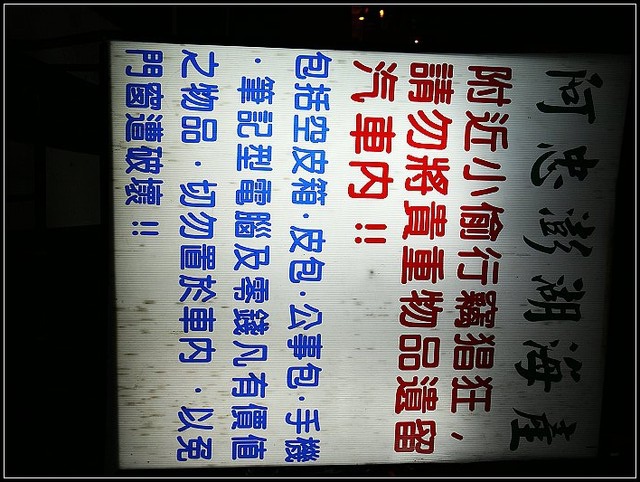 阿忠澎湖海產
附近小偷行竊猖狂、
請勿將貴重物品遺留
汽車內!!
包括空皮箱·皮包·公事包·手機
·筆記型電腦及零錢凡有價值
之物品·切勿置於車內·以免
門窗遭破壞!!